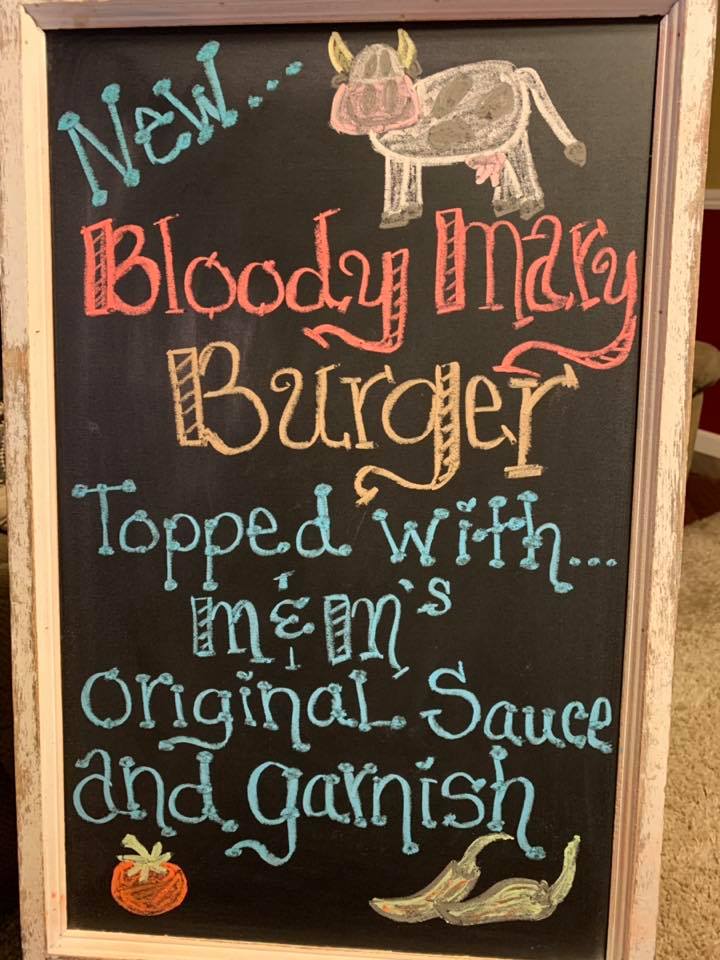 New...
Bloody Mary
Burger
Topped with...
M&M's
Original Sauce
and garnish